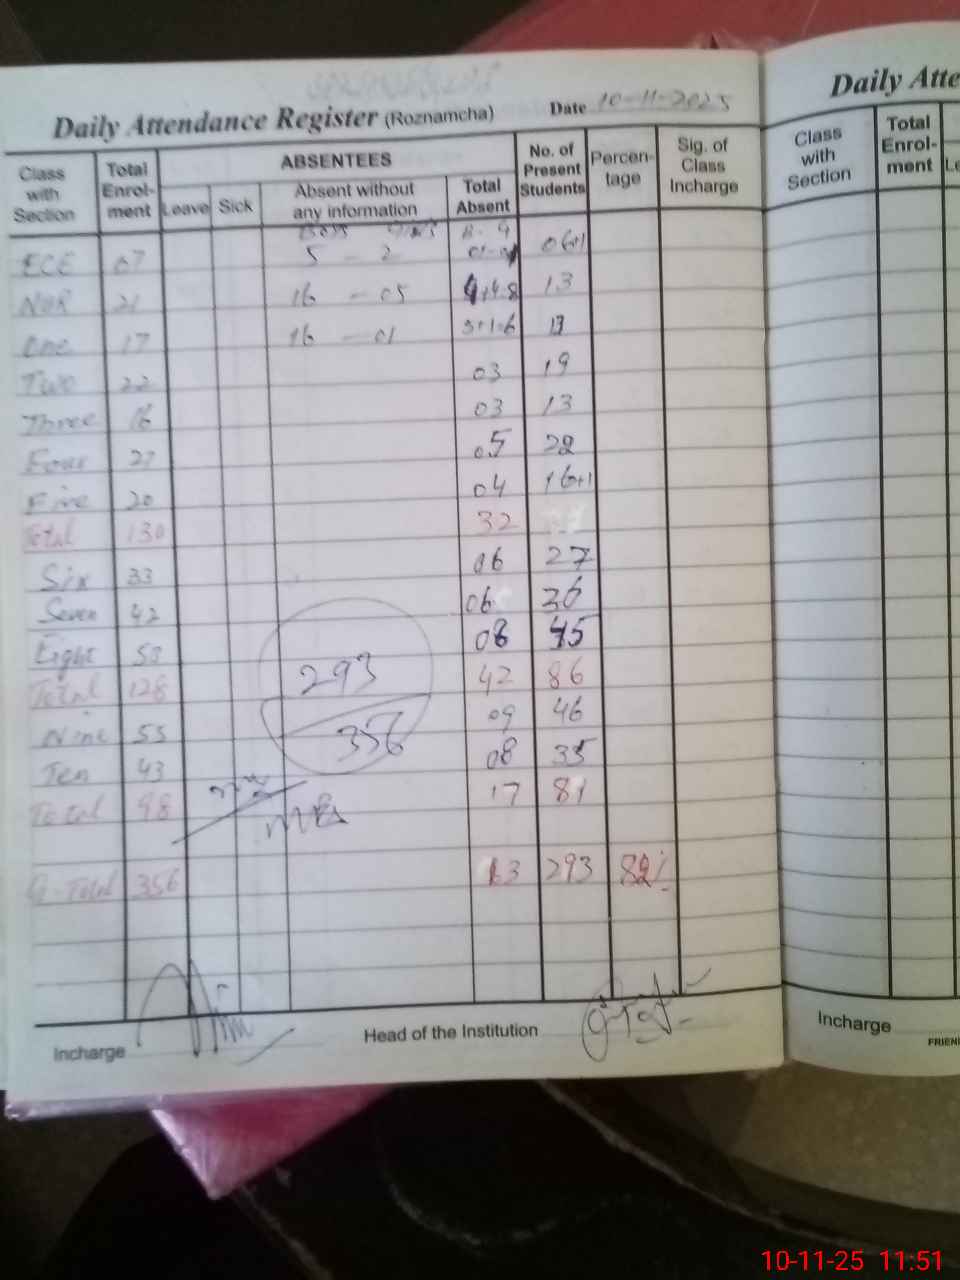 Daily Attendance Register (Roznamcha) Date 10-11-2025
Class with Section Total Enrol-ment ABSENTEES Leave Sick Absent without any information Total Absent No. of Present Students Percen-tage Sig. of Class Incharge
Boys Girls B - G
ECE 07 5 - 2 06+1
NUR 21 16 - 05 4+4=8 13
One 17 16 - 01 5+1=6 11
Two 22 03 19
Three 16 03 13
Four 27 05 22
Five 20 04 16+1
Total 130 32
Six 33 06 27
Seven 42 06 36
Eight 53 08 45
Total 128 42 86
293
Nine 55 09 46
356
Ten 43 08 35
Total 98 17 81
G-Total 356 63 293 82%
Incharge Head of the Institution
Daily Atte
Class with Section Total Enrol-ment Le
Incharge
FRIEN
10-11-25 11:51